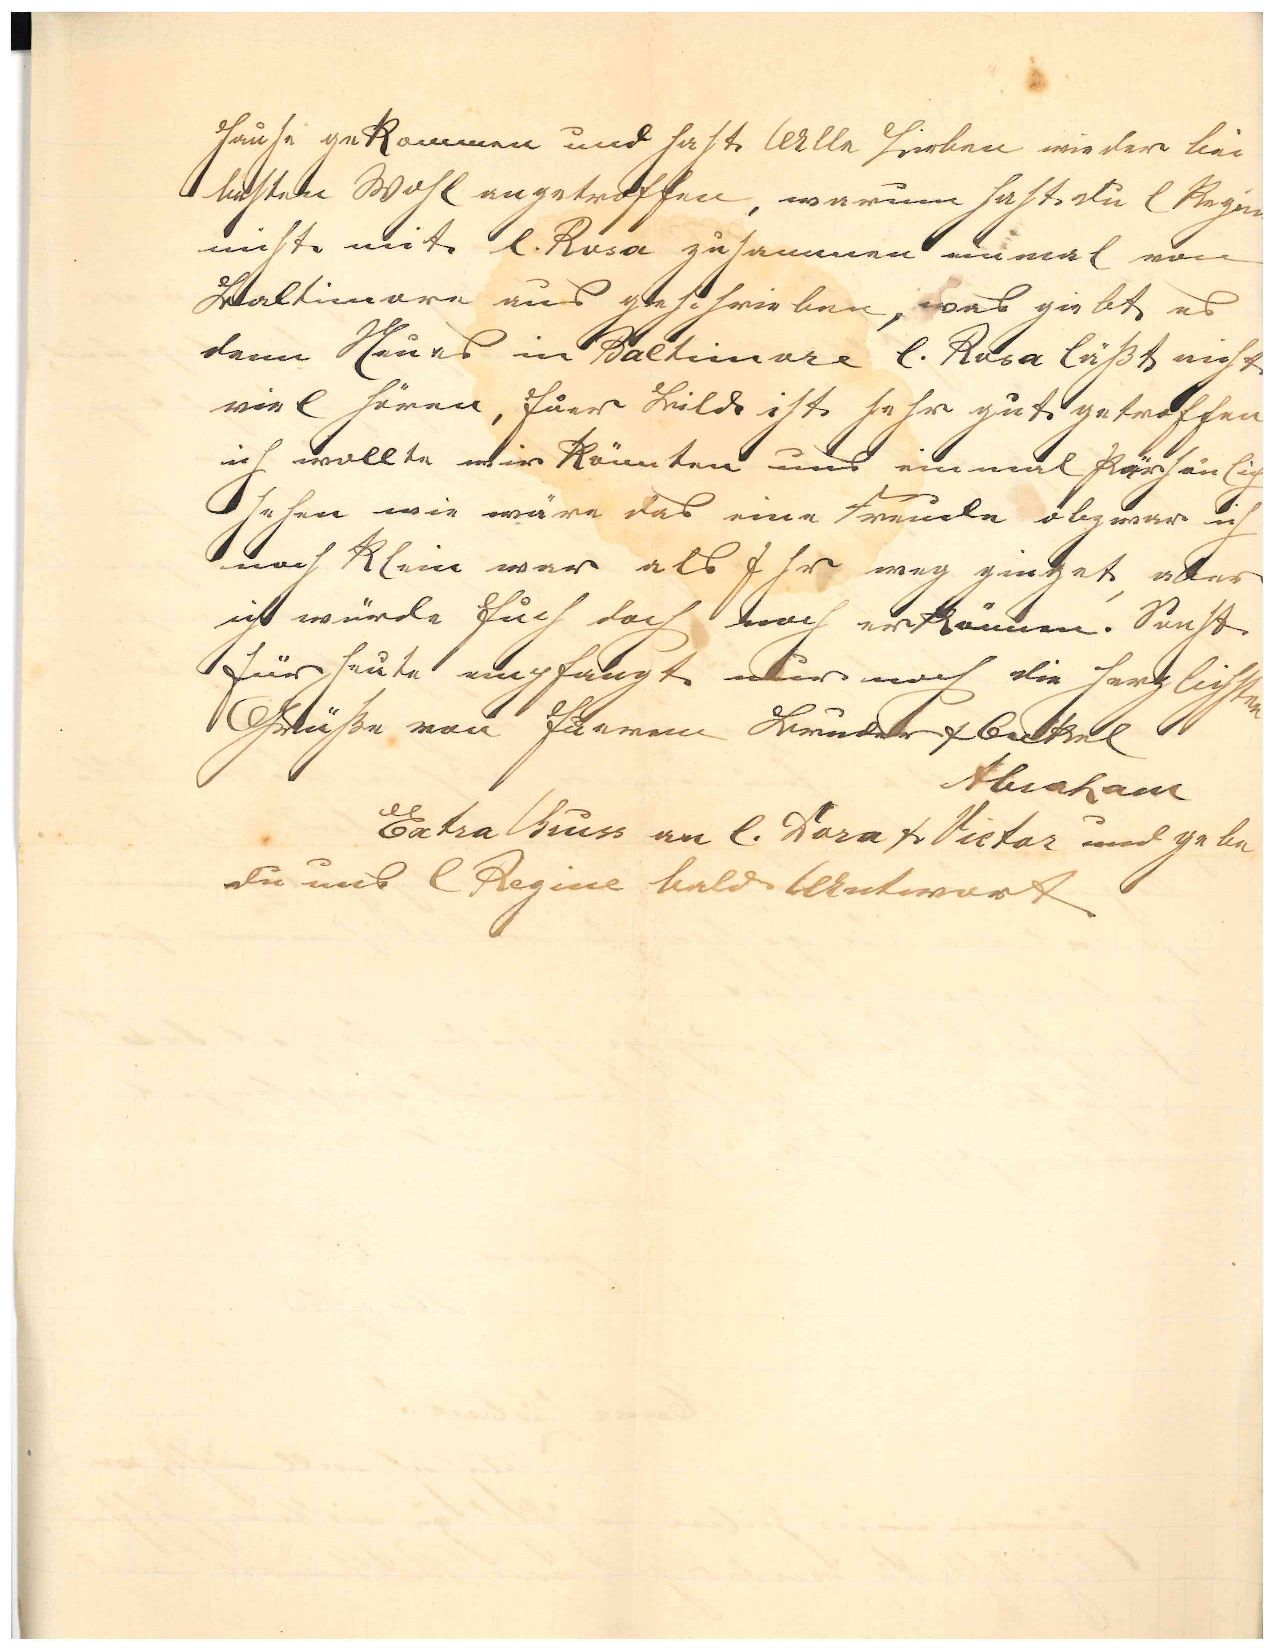 Hause gekommen und hast Alle Lieben wieder bei
besten Wohl angetroffen, warum hast du l Regin
nicht mit l. Rosa zusammen einmal von
Baltimore aus geschrieben, was giebt es
denn Neues in Baltimore l. Rosa läßt nicht
viel hören, Euer Bild ist sehr gut getroffen
ich wollte wir könnten uns einmal Persönlich
sehen wie wäre das eine Freude obzwar ich
noch klein war als Ihr weg ginget, aber
ich würde Euch doch noch erkännen. Sonst
für heute empfangt nur noch die herzlichsten
Grüße von Euerem Bruder & Onkel
Abraham
Extra Kuss an l. Dora & Victor und gebe
du uns l Regine bald Antwort